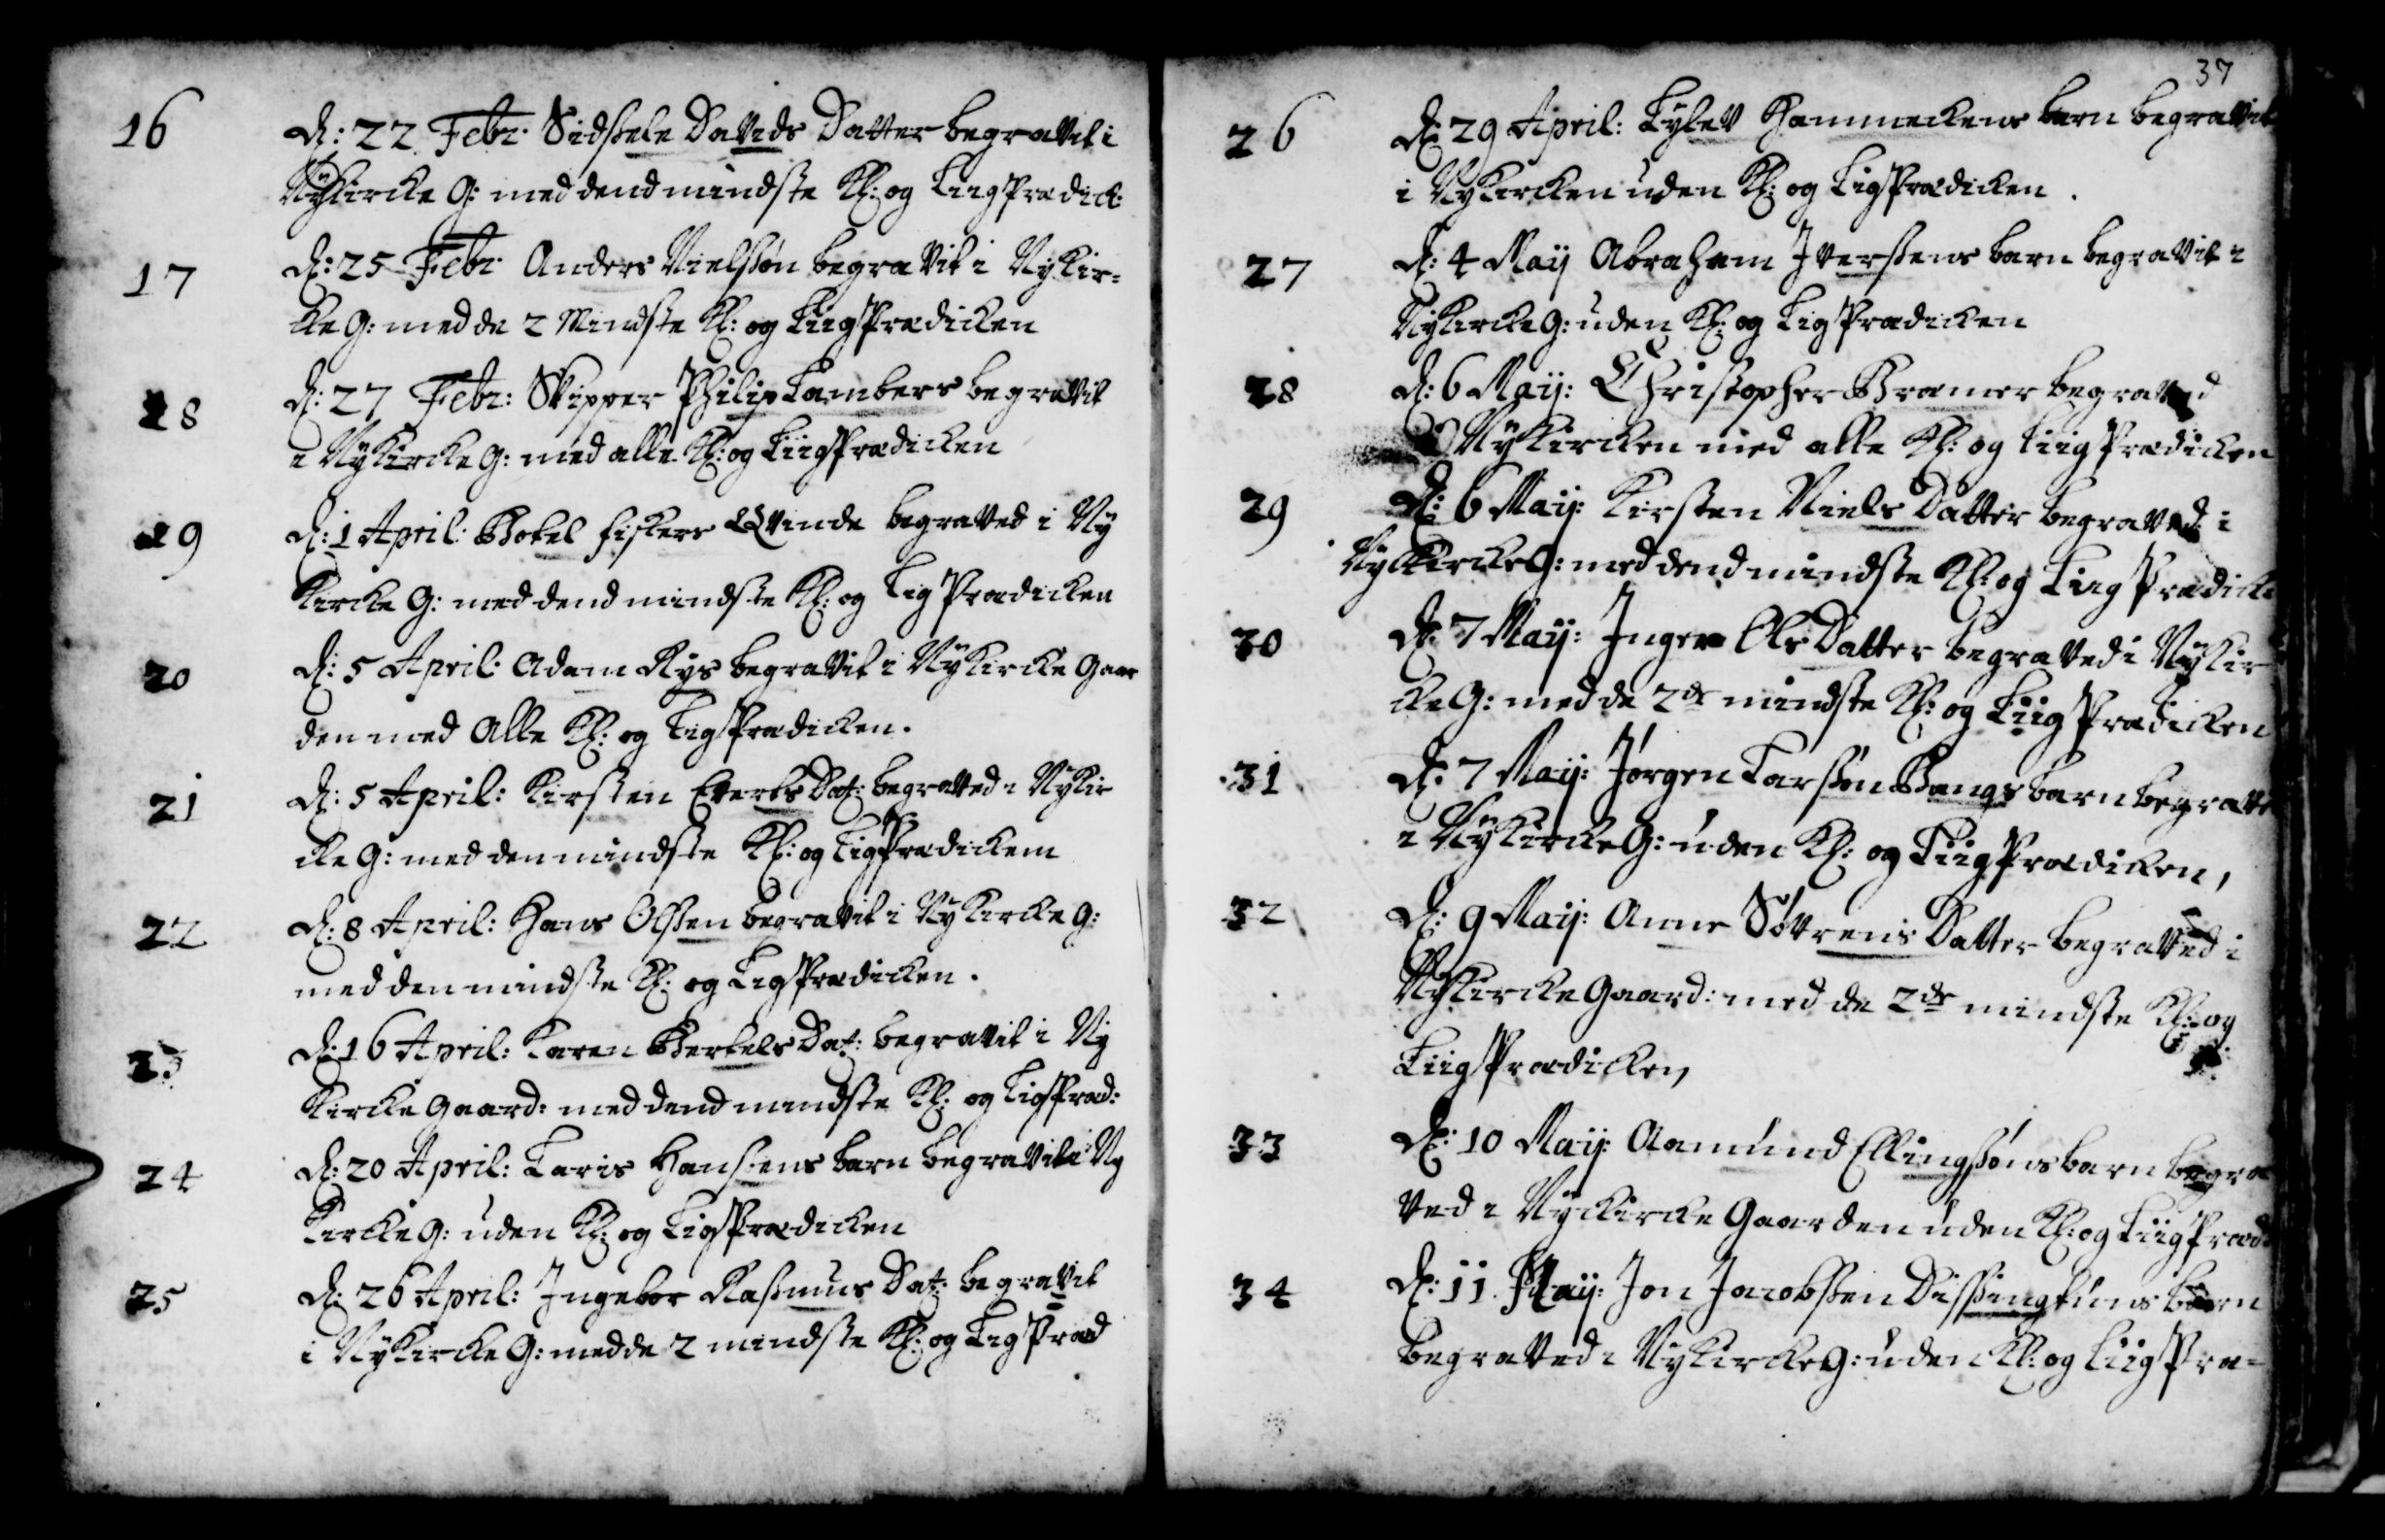 16 d: 22 Febr: Sidszele Davids Datter begravit i
Nykircke G: med dend mindste Kl: og Liigprædick:
17 d: 25 Febr Anders Nielszøn begravit i Nykir=
cke G: med de 2 Mindste Kl: og Liigprædicken
18 d: 27 Febr: Skipper Philip Lambers begravit
i Nykircke G: med alle Kl: og Liigprædicken
19 d: 1 April: Botel fiskers Qvinde begraved i Ny
Kircke G: med dend mindste Kl: og Ligprædicken
20 d: 5 April: Adam Rys begravit i Nykircke Gaar
den med Alle Kl: og Ligprædicken.
21 d: 5 April: Kirsten Everts Dat: begraved i Nykir
cke G: med den mindste Kl: og Ligprædicken
22 d: 8 April: Hans Olszen begravit i Nykircke G:
med den mindste Kl: og Ligprædicken.
23 d: 16 April: Karen Bertels Dat: begravit i Ny
Kircke Gaard: med dend mindste Kl: og Ligpræd:
24 d: 20 April: Laris Hansens barn begravit i Ny
Kircke G: uden Kl: og Ligprædicken
25 d: 26 April: Ingebor Rasmus Dat: begravit
i Nykircke G: med de 2 mindste Kl: og Ligpræd
37
26 d: 29 April: barn begravit
i Nykircken uden Kl: og Ligprædicken.
27 d: 4 Maij Abraham Iverszens barn begravit i
Nykircke G: uden Kl: og Ligprædicken
28 d: 6 Maij: Christopher Bramer begraved
Nykircken med alle Kl: og Liigprædicken
29 d: 6 Maij: Kirsten Niels Datter begraved i
Nyckircke G: med dend mindste Kl: og Liigprædicke
30 d: 7 Maij: Inger Ols Datter begraved i Nykir
cke G: med de 2de mindste Kl: og Liigprædicken
31 d: 7 Maij: Jørgen Larszøn Bangs barn begrave
i Nykircke G: uden Kl: og Liigprædicken,
32 d: 9 Maij: Anne Søvrens Datter begraved i
Nykircke Gaard: med de 2de mindste Kl: og
Liigprædicken,
33 d: 10 Maij: Aamund Ellingszøns barn begra
ved i Nyckircke Gaarden uden Kl: og Liigpræd
34 d: 11. Maij: Jon Jacobszen barn
begraved i Nykircke G: uden Kl: og Liigpræ=